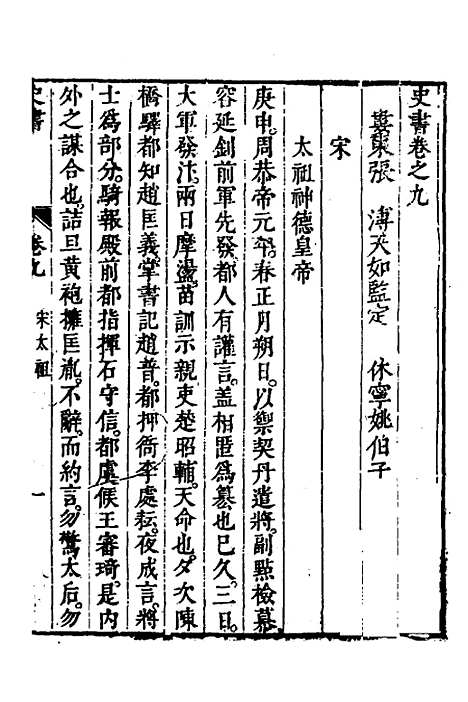 史書卷之九
婁東張 溥天如監定 休寧姚伯子
宋
太祖神德皇帝
庚申。周恭帝元年。春正月朔日。以禦契丹遣將。副點檢慕
容延釗前軍先發。都人有讙言。盖相匿爲纂也已久。三日。
大軍發汴。兩日摩盪。苗訓示親吏楚昭輔。天命也。夕次陳
橋驛。都知趙匡義。掌書記趙普。都押衙李處耘。夜成言。將
士爲部分。騎報殿前都指揮石守信。都虞候王審琦。是内
外之謀合也。詰旦黄袍擁匡胤。不辭。而約言。勿驚太后。勿
史書 卷九 宋太祖 一